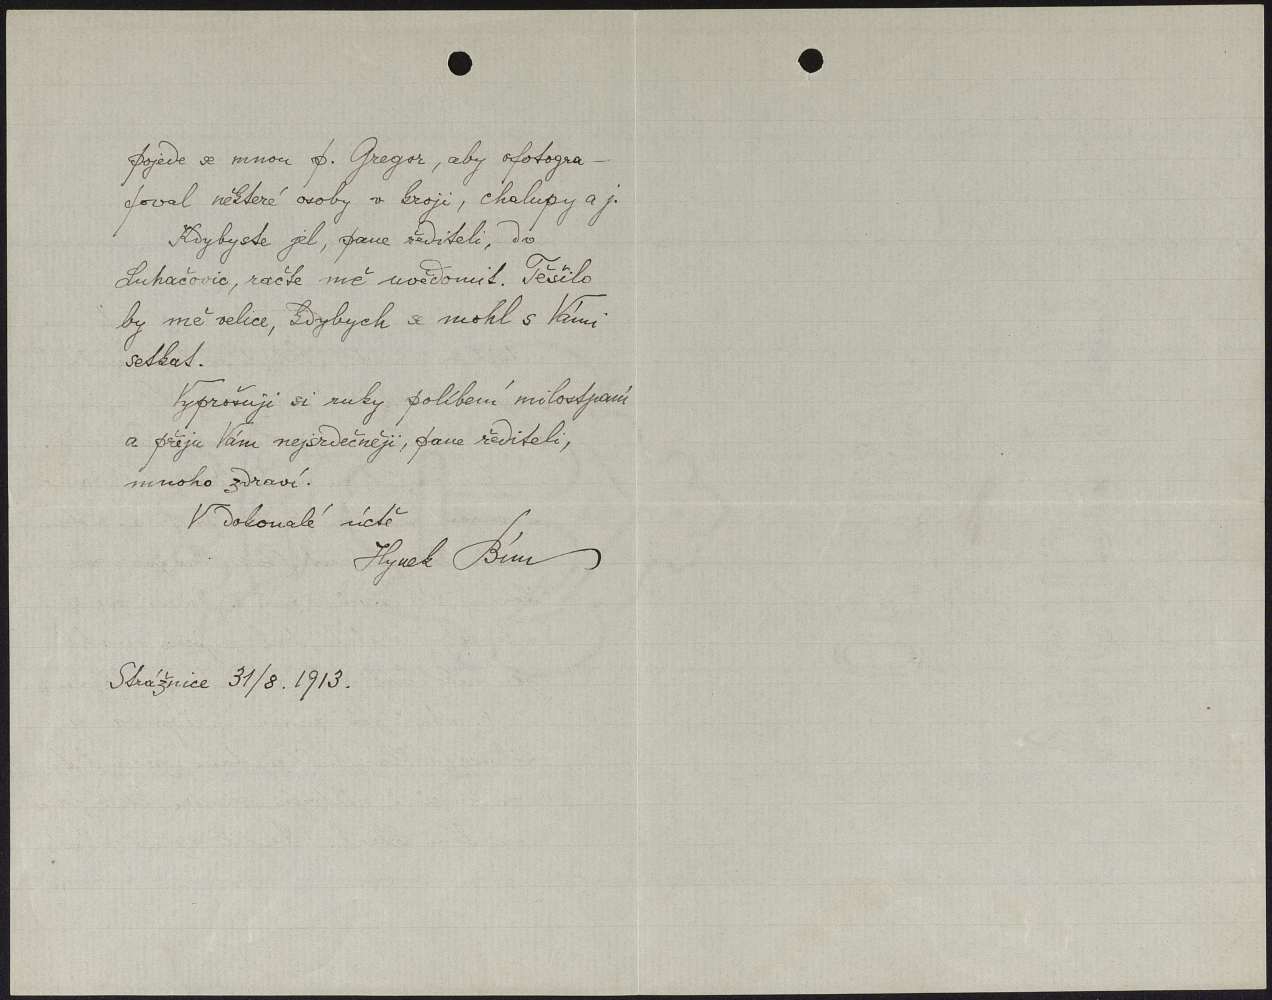 pojede se mnou p. Gregor, aby ofotogra-
foval některé osoby v kroji, chalupy a j.
Kdybyste jel, pane řediteli, do
Luhačovic, račte mě uvědomit. Těšilo
by mě velice, kdybych se mohl s Vámi
setkat.
Vyprošuji si ruky políbení milostpaní
a přeju Vám nejsrdečněji, pane řediteli,
mnoho zdraví.
V dokonalé úctě
Hynek Bím
Strážnice 31/8. 1913.